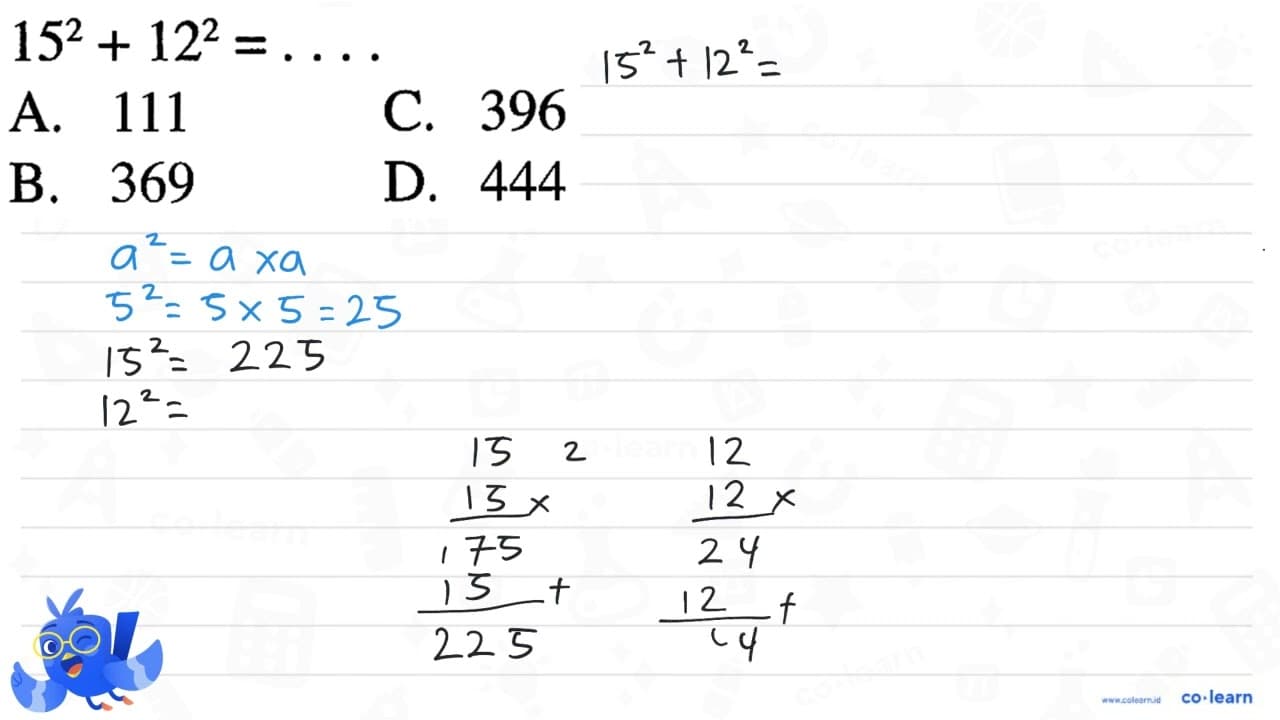 15² + 12² = . . . .
A. 111 C. 396
B. 369 D. 444
15² + 12² =
a² = a x a
5² = 5 x 5 = 25
15² = 225
12² =
15 2
15 x
1 75
15 +
225
12
12 x
24
12 +
44
www.colearn.id co·learn